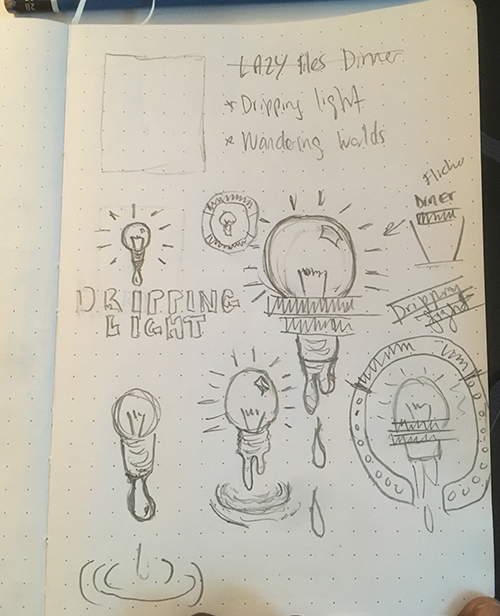 LAZY Flies Dinner
* Dripping light
* Wandering Worlds
Dinner
DRIPPING
LIGHT
Dripping
light
2B